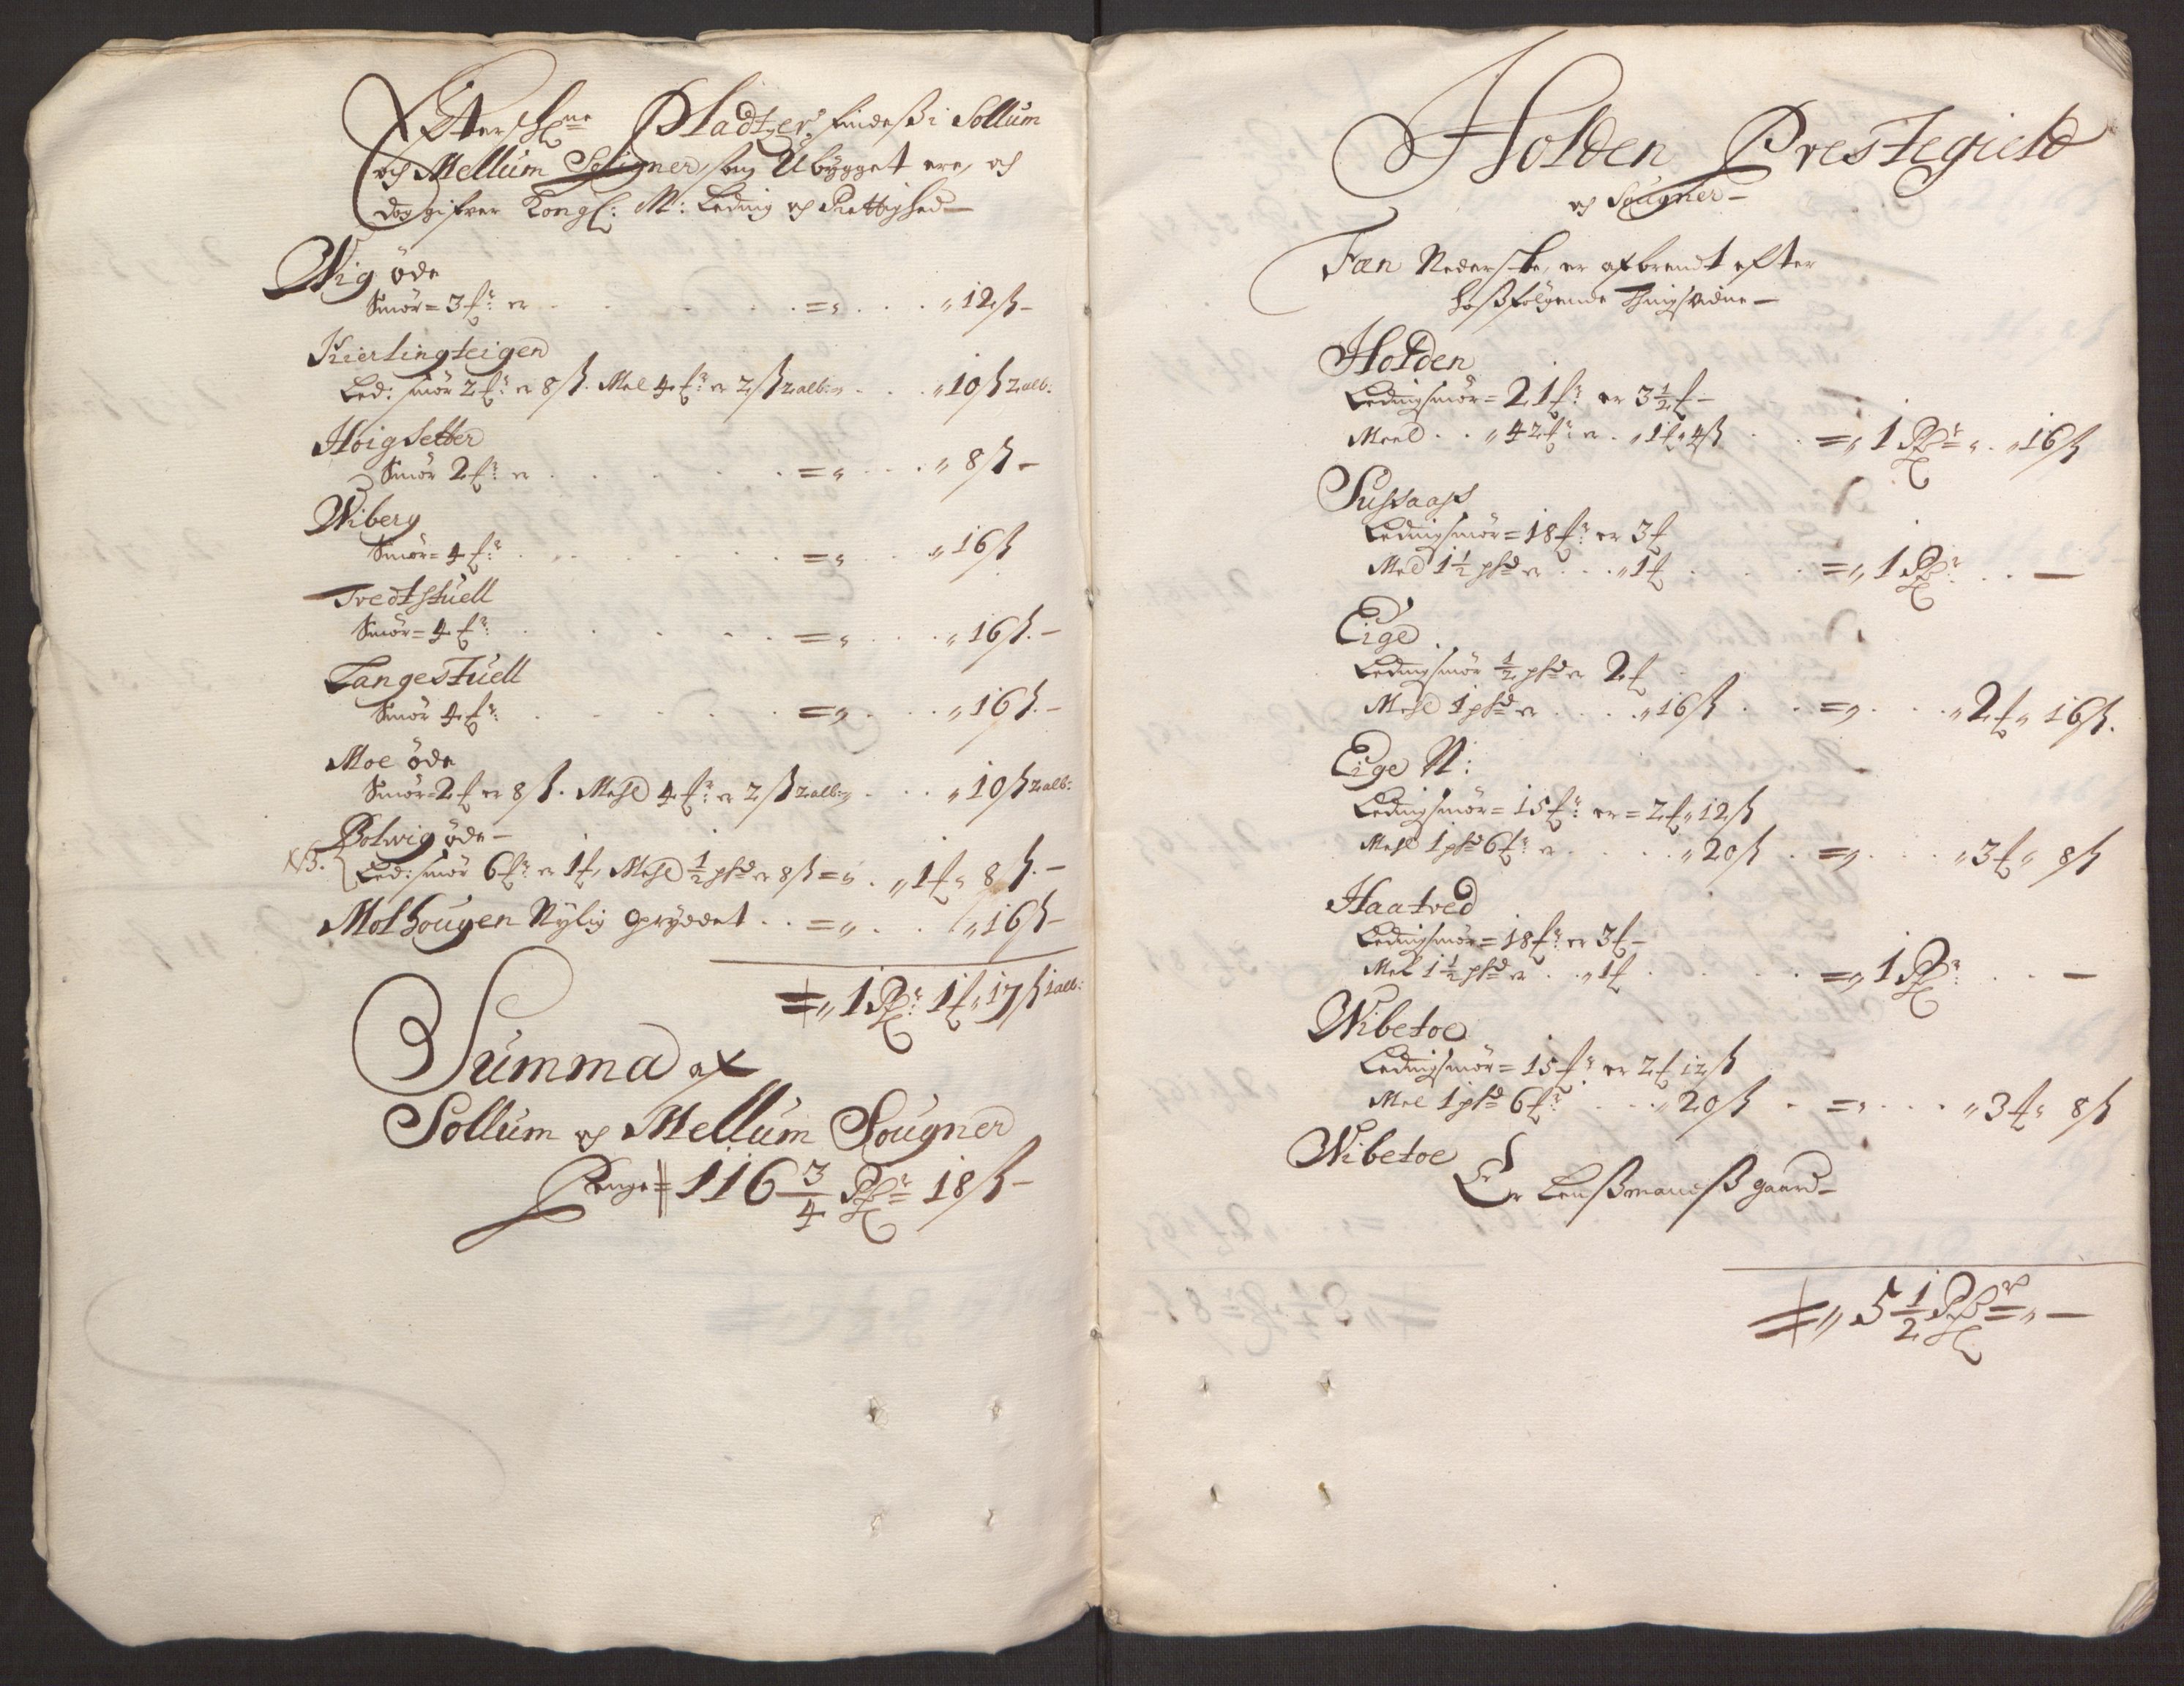 Efterschne Pladtzer findeß i Sollum
och Mellum Sougner, som Ubygget ere, och
dog gifver Kongl: M: Leding och Rettighed –
Wig öde
Smör = 3 ℔r: er . . . . . = „ . . . „ 12 ß –
Kierlingteigen
Led: smör 2 ℔r: er 8 ß. Mel 4 ℔r: er 2 ß 2 alb: „ . . . „ 10 ß 2 alb:
Hoigsetter
Smör 2 ℔r: er . . . . . = „ . . . „ 8 ß –
Wiberg
Smör = 4 ℔r: . . . . . = „ . . . „ 16 ß
Tvedtstuell
Smör = 4 ℔r: . . . . . = „ . . . „ 16 ß. –
Langestuell
Smör 4 ℔r: . . . . . = „ . . . „ 16 ß. –
Moe öde
Smör = 2 ℔ er 8 ß. Mehl 4 ℔r: er 2 ß 2 alb: „ . . . „ 10 ß 2 alb:
Bolwig öde –
NB. Led: smör 6 ℔r: er 1 ℔, Mehl 1/2 phd er 8 ß = „ . „ 1 ℔ „ 8 ß. –
Molhougen Nylig Opryddet . . = „ . . „ 16 ß –
= „ 1 Rdr: 1 ℔ „ 17 ß 1 alb:
Summa af
Sollum och Mellum Sougner
Penge = 116 3/4 Rdr = 18 ß –
Holden Prestegield
och Sougner –
Fæn Nederste, er afbrendt efter
hoßfölgende Tingsvidne –
Holden
Ledingsmör = 21 ℔r: er 3 1/2 ℔ –
Meel . . „ 42 ℔r: er . „ 1 ℔ „ 4 ß . . = „ 1 Rdr = „ . „ 16 ß
Sussaas
Ledingsmör = 18 ℔r: er 3 ℔
Mel 1 1/2 phd er . . . „ 1 ℔ . . . = „ 1 Rdr: . . –
Eige
Ledingsmör 1/2 phd er 2 ℔
Mehl 1 phd er . . . . „ 16 ß . . = „ . . . „ 2 ℔ „ 16 ß.
Eige N:
Ledingsmör = 15 ℔r: er = 2 ℔ „ 12 ß
Mehl 1 phd 6 ℔r: er . . . . „ 20 ß . = „ . . . „ 3 ℔ „ 8 ß
Haatved
Ledingsmör = 18 ℔r: er 3 ℔ –
Mel 1 1/2 phd er . . „ 1 ℔ . . . . = „ 1 Rdr: . . –
Wibetoe
Ledingsmör = 15 ℔r: er 2 ℔ 12 ß
Mel 1 phd 6 ℔r: . . . „ 20 ß . = „ . . . „ 3 ℔ „ 8 ß
Wibetoe
Er Lenßmandß gaard –
= „ 5 1/2 Rdr = „ –